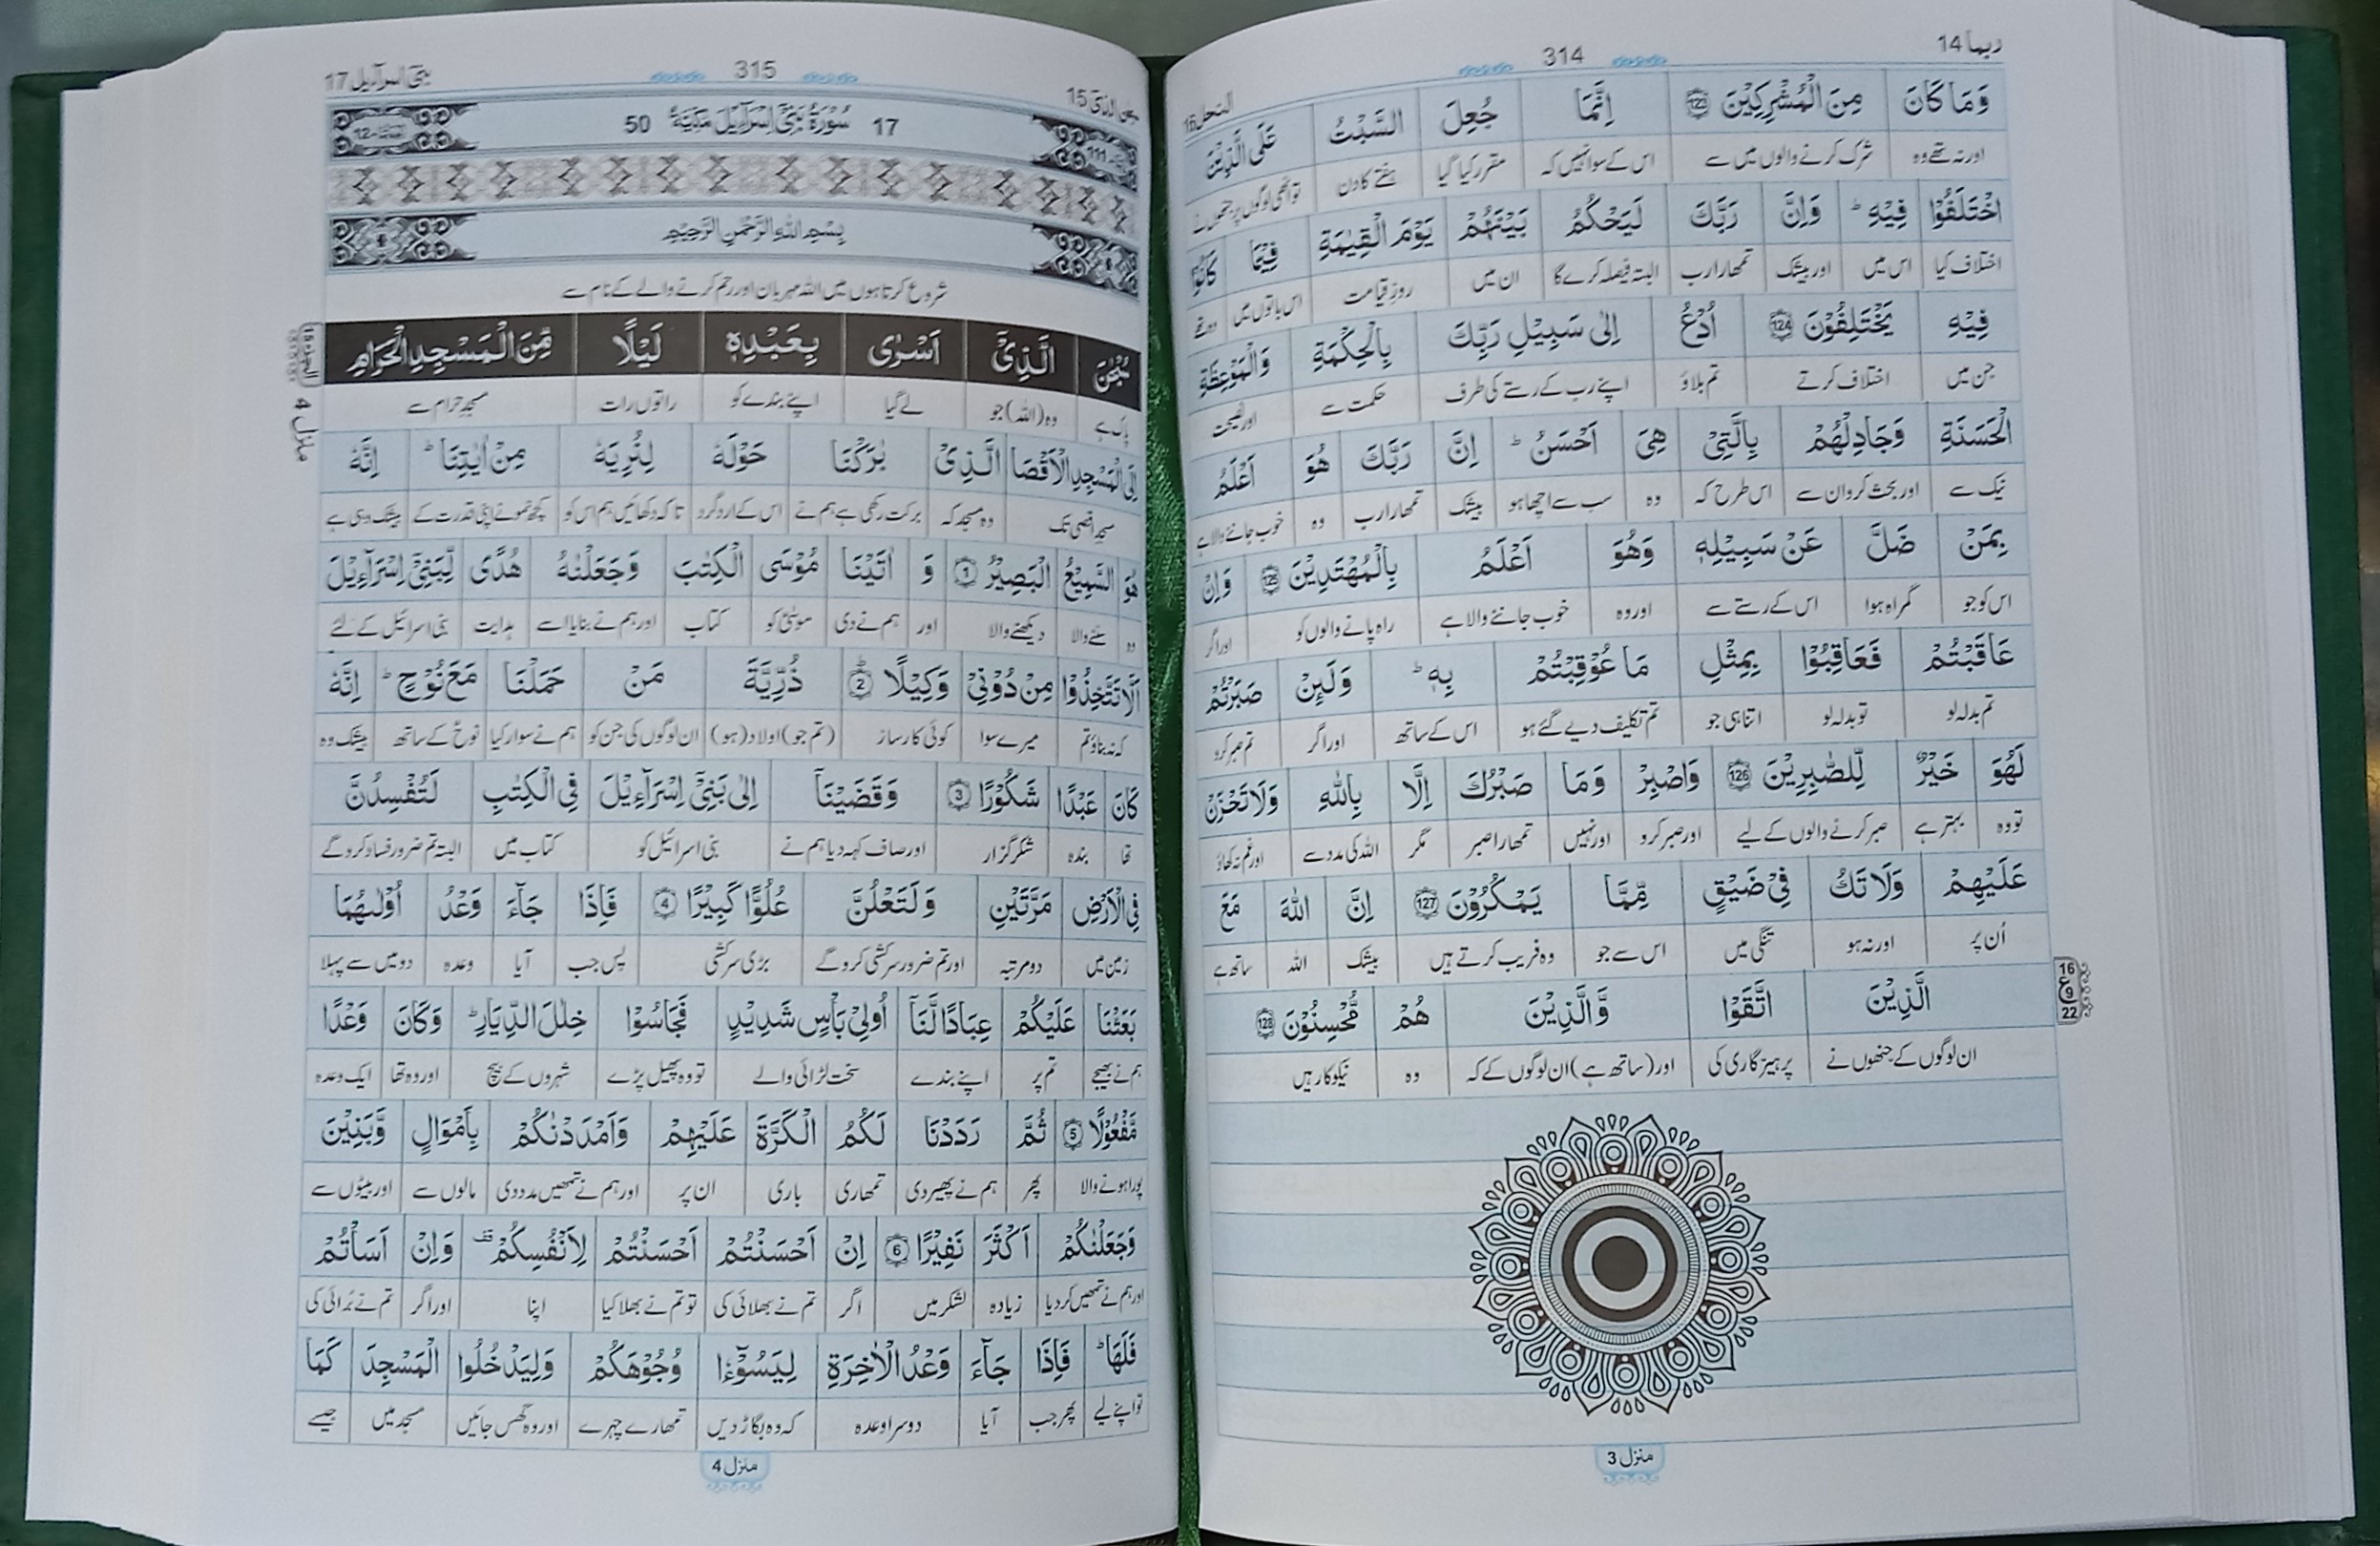 ربما 14
314
النحل 16
وَمَا كَانَ مِنَ الْمُشْرِكِيْنَ 123 اِنَّمَا جُعِلَ السَّبْتُ عَلَى الَّذِيْنَ
اور نہ تھے وہ شرک کرنے والوں میں سے اس کے سوا نہیں کہ مقرر کیا گیا ہفتے کا دن تو انھی لوگوں پر جنھوں نے
اخْتَلَفُوْا فِيْهِ ؕ وَاِنَّ رَبَّكَ لَيَحْكُمُ بَيْنَهُمْ يَوْمَ الْقِيٰمَةِ فِيْمَا كَانُوْا
اختلاف کیا اس میں اور بیشک تمھارا رب البتہ فیصلہ کرے گا ان میں روزِ قیامت اس باتوں میں وہ تھے
فِيْهِ يَخْتَلِفُوْنَ 124 اُدْعُ اِلٰى سَبِيْلِ رَبِّكَ بِالْحِكْمَةِ وَالْمَوْعِظَةِ
جن میں اختلاف کرتے تم بلاؤ اپنے رب کے رستے کی طرف حکمت سے اور نصیحت
الْحَسَنَةِ وَجَادِلْهُمْ بِالَّتِيْ هِيَ اَحْسَنُ ؕ اِنَّ رَبَّكَ هُوَ اَعْلَمُ
نیک سے اور بحث کرو ان سے اس طرح کہ وہ سب سے اچھا ہو بیشک تمھارا رب وہ خوب جاننے والا ہے
بِمَنْ ضَلَّ عَنْ سَبِيْلِهٖ وَهُوَ اَعْلَمُ بِالْمُهْتَدِيْنَ 125 وَاِنْ
اس کو جو گمراہ ہوا اس کے رستے سے اور وہ خوب جاننے والا ہے راہ پانے والوں کو اور اگر
عَاقَبْتُمْ فَعَاقِبُوْا بِمِثْلِ مَا عُوْقِبْتُمْ بِهٖ ؕ وَلَئِنْ صَبَرْتُمْ
تم بدلہ لو تو بدلہ لو اتنا ہی جو تم تکلیف دیے گئے ہو اس کے ساتھ اور اگر تم صبر کرو
لَهُوَ خَيْرٌ لِّلصّٰبِرِيْنَ 126 وَاصْبِرْ وَمَا صَبْرُكَ اِلَّا بِاللّٰهِ وَلَا تَحْزَنْ
تو وہ بہتر ہے صبر کرنے والوں کے لیے اور صبر کرو اور نہیں تمھارا صبر مگر اللہ کی مدد سے اور غم نہ کھاؤ
عَلَيْهِمْ وَلَا تَكُ فِيْ ضَيْقٍ مِّمَّا يَمْكُرُوْنَ 127 اِنَّ اللّٰهَ مَعَ
اُن پر اور نہ ہو تنگی میں اس سے جو وہ فریب کرتے ہیں بیشک اللہ ساتھ ہے
الَّذِيْنَ اتَّقَوْا وَّالَّذِيْنَ هُمْ مُّحْسِنُوْنَ 128
ان لوگوں کے جنھوں نے پرہیز گاری کی اور (ساتھ ہے) ان لوگوں کے کہ وہ نیکوکار ہیں
16
ع 9
22
منزل 3
15
315
بنی اسرآءیل 17
17 سُوْرَةُ بَنِيْٓ اِسْرَآءِيْلَ مَكِّيَّةٌ 50
111
12
بِسْمِ اللّٰهِ الرَّحْمٰنِ الرَّحِيْمِ
شروع کرتا ہوں میں اللہ مہربان اور رحم کرنے والے کے نام سے
سُبْحٰنَ الَّذِيْٓ اَسْرٰى بِعَبْدِهٖ لَيْلًا مِّنَ الْمَسْجِدِ الْحَرَامِ
پاک ہے وہ (اللہ) جو لے گیا اپنے بندے کو راتوں رات مسجد حرام سے
اِلَى الْمَسْجِدِ الْاَقْصَا الَّذِيْ بٰرَكْنَا حَوْلَهٗ لِنُرِيَهٗ مِنْ اٰيٰتِنَا ؕ اِنَّهٗ
مسجد اقصیٰ تک وہ مسجد کہ برکت رکھی ہے ہم نے اس کے ارد گرد تاکہ دکھائیں ہم اس کو کچھ نمونے اپنی قدرت کے بیشک وہی ہے
هُوَ السَّمِيْعُ الْبَصِيْرُ 1 وَ اٰتَيْنَا مُوْسَى الْكِتٰبَ وَجَعَلْنٰهُ هُدًى لِّبَنِيْٓ اِسْرَآءِيْلَ
وہ سننے والا دیکھنے والا اور ہم نے دی موسیٰ کو کتاب اور ہم نے بنایا اسے ہدایت بنی اسرائیل کے لئے
اَلَّا تَتَّخِذُوْا مِنْ دُوْنِيْ وَكِيْلًا 2 ذُرِّيَّةَ مَنْ حَمَلْنَا مَعَ نُوْحٍ ؕ اِنَّهٗ
کہ نہ بناؤ تم میرے سوا کوئی کارساز (تم جو) اولاد (ہو) ان لوگوں کی جن کو ہم نے سوار کیا نوح کے ساتھ بیشک وہ
كَانَ عَبْدًا شَكُوْرًا 3 وَقَضَيْنَآ اِلٰى بَنِيْٓ اِسْرَآءِيْلَ فِي الْكِتٰبِ لَتُفْسِدُنَّ
تھا بندہ شکر گزار اور صاف کہہ دیا ہم نے بنی اسرائیل کو کتاب میں البتہ تم ضرور فساد کرو گے
فِي الْاَرْضِ مَرَّتَيْنِ وَلَتَعْلُنَّ عُلُوًّا كَبِيْرًا 4 فَاِذَا جَآءَ وَعْدُ اُوْلٰىهُمَا
زمین میں دو مرتبہ اور تم ضرور سرکشی کرو گے بڑی سرکشی پس جب آیا وعدہ دو میں سے پہلا
بَعَثْنَا عَلَيْكُمْ عِبَادًا لَّنَآ اُولِيْ بَاْسٍ شَدِيْدٍ فَجَاسُوْا خِلٰلَ الدِّيَارِ ؕ وَكَانَ وَعْدًا
ہم نے بھیجے تم پر اپنے بندے سخت لڑائی والے تو وہ پھیل پڑے شہروں کے بیچ اور وہ تھا ایک وعدہ
مَّفْعُوْلًا 5 ثُمَّ رَدَدْنَا لَكُمُ الْكَرَّةَ عَلَيْهِمْ وَاَمْدَدْنٰكُمْ بِاَمْوَالٍ وَّبَنِيْنَ
پورا ہونے والا پھر ہم نے پھیر دی تمھاری باری ان پر اور ہم نے تمھیں مدد دی مالوں سے اور بیٹوں سے
وَجَعَلْنٰكُمْ اَكْثَرَ نَفِيْرًا 6 اِنْ اَحْسَنْتُمْ اَحْسَنْتُمْ لِاَنْفُسِكُمْ وَاِنْ اَسَاْتُمْ
اور ہم نے تمھیں کر دیا زیادہ لشکر میں اگر تم نے بھلائی کی تو تم نے بھلا کیا اپنا اور اگر تم نے بُرائی کی
فَلَهَا ؕ فَاِذَا جَآءَ وَعْدُ الْاٰخِرَةِ لِيَسُوْٓءٗا وُجُوْهَكُمْ وَلِيَدْخُلُوا الْمَسْجِدَ كَمَا
تو اپنے لیے پھر جب آیا دوسرا وعدہ کہ وہ بگاڑ دیں تمھارے چہرے اور وہ گھس جائیں مسجد میں جیسے
منزل 4
منزل 4